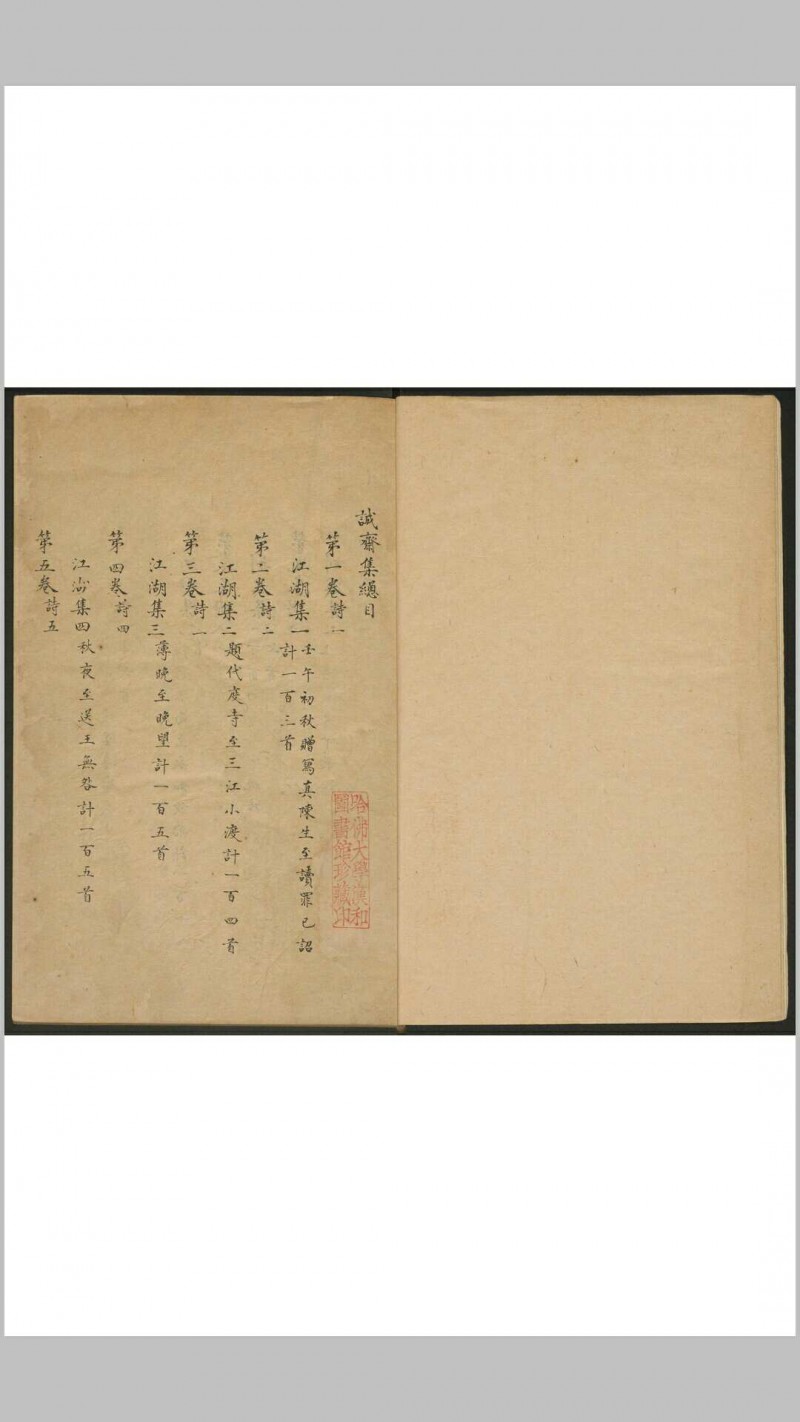 誠齋集總目
第一卷詩一
江湖集一壬午初秋贈寫真陳生至讀罪己詔
計一百三首
第二卷詩二
江湖集二題代度寺至三江小渡計一百四首
第三卷詩
江湖集三薄晚至晚望計一百五首
第四卷詩四
江湖集四秋夜至送王無咎計一百五首
第五卷詩五
哈佛大學漢和
圖書館珍藏印